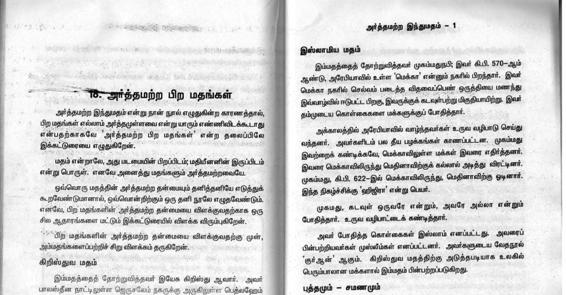 18. அர்த்தமற்ற பிற மதங்கள்
அர்த்தமற்ற இந்துமதம் என்று நான் நூல் எழுதுகின்ற காரணத்தால்,
பிற மதங்கள் எல்லாம் அர்த்தமுள்ளவை என்று யாரும் எண்ணிவிடக்கூடாது
என்பதற்காகவே 'அர்த்தமற்ற பிற மதங்கள்' என்ற தலைப்பிலே
இக்கட்டுரையை எழுதுகிறேன்.
மதம் என்றாலே, அது மடமையின் பிறப்பிடம்; மதியீனனின் இருப்பிடம்
என்று பொருள். எனவே அனைத்து மதங்களும் அர்த்தமற்றவையே.
ஒவ்வொரு மதத்தின் அர்த்தமற்ற தன்மையும் தனித்தனியே எடுத்துக்
கூறவேண்டுமானால், ஒவ்வொன்றிற்கும் ஒரு தனி நூலே எழுதவேண்டும்.
எனவே, பிற மதங்களின் அர்த்தமற்ற தன்மையை விளக்குவதற்காக ஒரு
சில ஆதாரங்களை மட்டும் இக்கட்டுரையில் விளக்க விரும்புகிறேன்.
பிற மதங்களின் அர்த்தமற்ற தன்மையை விளக்குவதற்கு முன்,
அம்மதங்களைப்பற்றிச் சிறு விளக்கம் தருகிறேன்.
கிறிஸ்துவ மதம்
இம்மதத்தைத் தோற்றுவித்தவர் இயேசு கிறிஸ்து ஆவார். அவர்
பாலஸ்தீன நாட்டிலுள்ள ஜெருசலேம் நகருக்கு அருகிலுள்ள பெத்லஹேம்
அர்த்தமற்ற இந்துமதம் – 1
இஸ்லாமிய மதம்
இம்மதத்தைத் தோற்றுவித்தவர் முகம்மதுநபி; இவர் கி.பி. 570-ஆம்
ஆண்டு, அரேபியாவில் உள்ள 'மெக்கா' என்னும் நகரில் பிறந்தார். இவர்
மெக்கா நகரில் செல்வம் படைத்த விதவைப்பெண் ஒருத்தியை மணந்து
இவ்வாழ்வில் ஈடுபட்ட பிறகு, இவருக்குக் கடவுள்பற்று மிகுதியாயிற்று. இவர்
தம்முடைய கொள்கைகளை மக்களுக்குப் போதித்தார்.
அக்காலத்தில் அரேபியாவில் வாழ்ந்தவர்கள் உருவ வழிபாடு செய்து
வந்தனர். அவர்களிடம் பல தீய பழக்கங்கள் காணப்பட்டன. முகம்மது
இவற்றைக் கண்டிக்கவே, மெக்காவிலுள்ள மக்கள் இவரை எதிர்த்தனர்.
இவரை மெக்காவிலிருந்து மெதினாவிற்குக் கல்லால் அடித்து விரட்டினர்.
முகம்மது, கி.பி. 622-இல் மெக்காவிலிருந்து, மெதினாவிற்கு ஓடினார்.
இந்த நிகழ்ச்சிக்கு 'ஹிஜிரா' என்று பெயர்.
முகமது, கடவுள் ஒருவரே என்றும், அவரே அல்லா என்றும்
போதித்தார். உருவ வழிபாட்டைக் கண்டித்தார்.
அவர் போதித்த கொள்கைகள் இஸ்லாம் எனப்பட்டது. அவரைப்
பின்பற்றியவர்கள் முஸ்லீம்கள் எனப்பட்டனர். அவர்களுடைய வேதநூல்
'குர்ஆன்' ஆகும். கிறிஸ்துவ மதத்திற்கு அடுத்தபடியாக உலகில்
பெரும்பாலான மக்களால் இம்மதம் பின்பற்றப்படுகிறது.
புத்தமும் – சமணமும்